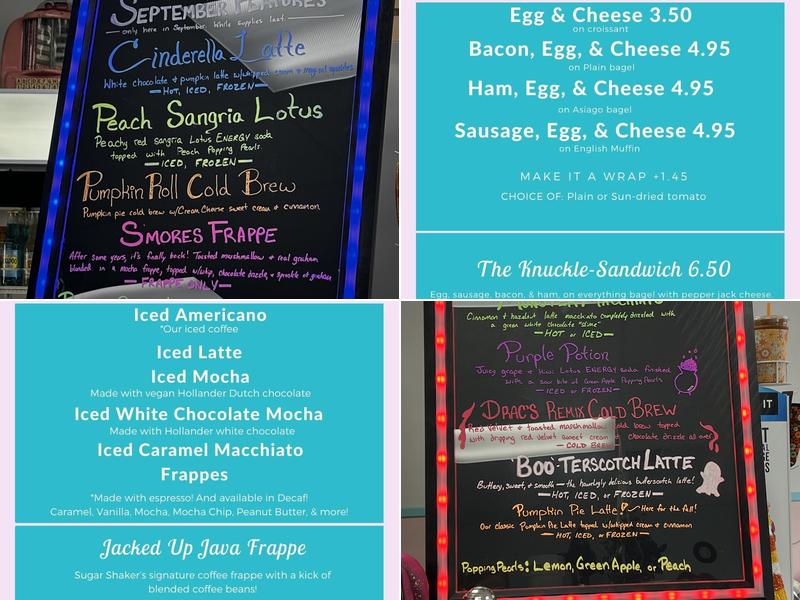 SEPTEMBER FEATURES
only here in September. While supplies last.
Cinderella Latte
White chocolate & pumpkin latte w/whipped cream & magical sparkles
HOT, ICED, FROZEN
Peach Sangria Lotus
Peachy red sangria Lotus ENERGY soda
topped with Peach Popping Pearls.
ICED, FROZEN
Pumpkin Roll Cold Brew
Pumpkin pie cold brew w/Cream Cheese sweet cream & cinnamon
S'MORES FRAPPE
After some years, it's finally back! Toasted marshmallow & real graham
blended in a mocha frappe, topped w/whip, chocolate drizzle, & sprinkle of graham
FRAPPE ONLY
Egg & Cheese 3.50
on croissant
Bacon, Egg, & Cheese 4.95
on Plain bagel
Ham, Egg, & Cheese 4.95
on Asiago bagel
Sausage, Egg, & Cheese 4.95
on English Muffin
MAKE IT A WRAP +1.45
CHOICE OF: Plain or Sun-dried tomato
The Knuckle-Sandwich 6.50
Egg, sausage, bacon, & ham, on everything bagel with pepper jack cheese
Iced Americano
*Our iced coffee
Iced Latte
Iced Mocha
Made with vegan Hollander Dutch chocolate
Iced White Chocolate Mocha
Made with Hollander white chocolate
Iced Caramel Macchiato
Frappes
*Made with espresso! And available in Decaf!
Caramel, Vanilla, Mocha, Mocha Chip, Peanut Butter, & more!
Jacked Up Java Frappe
Sugar Shaker's signature coffee frappe with a kick of
blended coffee beans!
MACCHIATO
Cinnamon & hazelnut latte macchiato completely drizzled with
a green white chocolate "slime"
HOT or ICED
Purple Potion
Juicy grape & kiwi Lotus ENERGY soda finished
with a sour bite of Green Apple Popping Pearls
ICED or FROZEN
DRAC'S REMIX COLD BREW
Red velvet & toasted marshmallow cold brew topped
with dripping red velvet sweet cream & chocolate drizzle all over
COLD BREW
"BOO"-TERSCOTCH LATTE
Buttery, sweet, & smooth - the hauntingly delicious butterscotch latte!
HOT, ICED, or FROZEN
Pumpkin Pie Latte! Here for the fall!
Our classic Pumpkin Pie Latte topped w/whipped cream & cinnamon
HOT, ICED, or FROZEN
Popping Pearls: Lemon, Green Apple, or Peach
IT